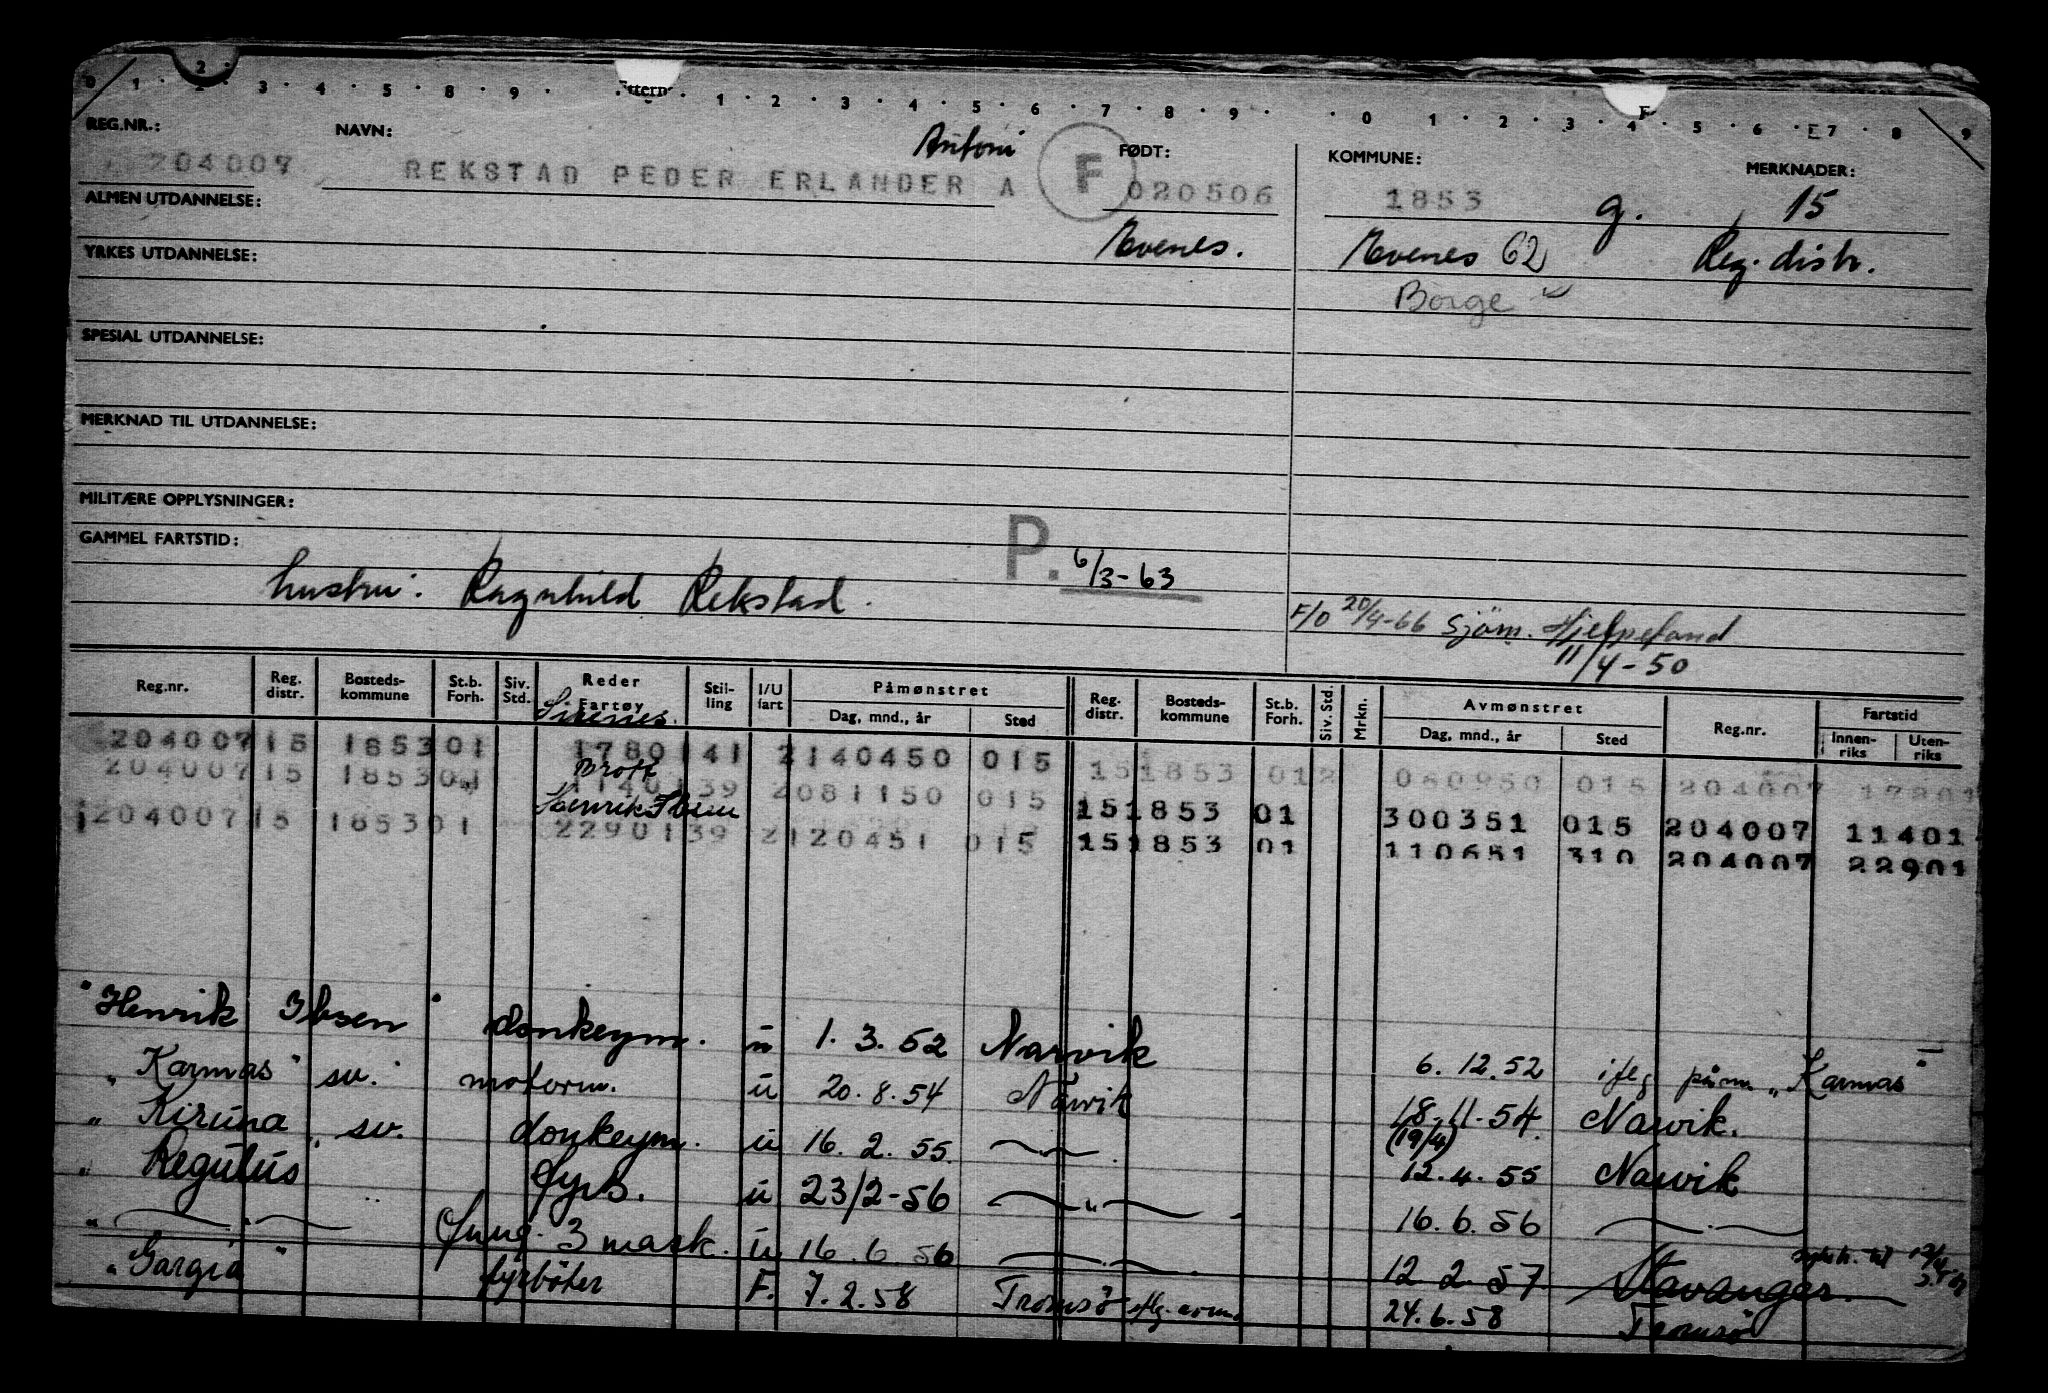 0 · 1 · 2 · 3 · 4 · 5 · 8 · 9 · 1 · 2 · 3 · 4 · 5 · 6 · 7 · 8 · 9 · · 0 · 1 · 2 · 3 · 4 · 5 · 6 · 7 · 8 · 9
REG.NR.: NAVN: Antoni FØDT: KOMMUNE: MERKNADER:
204007 REKSTAD PEDER ERLANDER A F 020506 1853 g. 15
ALMEN UTDANNELSE:
Evenes. Evenes 62 Reg. distr.
YRKES UTDANNELSE:
Borge
SPESIAL UTDANNELSE:
MERKNAD TIL UTDANNELSE:
MILITÆRE OPPLYSNINGER:
GAMMEL FARTSTID:
P. 6/3-63
hustru: Ragnhild Rekstad.
F/O 20/4-66 Sjöm. Hjelpefond
11/4-50
Reg.nr. Reg. distr. Bosteds-kommune St.b. Forh. Siv. Std. Reder Fartøy Stil-ling I/U fart Påmønstret Dag, mnd., år Sted Reg. distr. Bosteds-kommune St.b. Forh. Siv. Std. Mrkn. Avmønstret Dag, mnd., år Sted Reg.nr. Fartstid Innen-riks Uten-riks
204007 15 1853 01 1780 141 2 140450 015 15 1853 01 080950 015 204007 17801
204007 15 1853 01 Brott 1140 139 2 081150 015 15 1853 01 300351 015 204007 11401
204007 15 1853 01 Henrik Ibsen 2290 139 2 120451 015 15 1853 01 110651 310 204007 22901
"Henrik Ibsen" donkeym. u 1.3.52 Narvik 6.12.52 iflg påm "Karmas"
"Karmas" sv. motorm. u 20.8.54 Narvik 18.11.54. Narvik.
"Kiruna" sv. donkeym. u 16.2.55. (19/4) 12.4.55 Narvik
"Regulus" fyrb. u 23/2-56 16.6.56
fung. 3 mask. u 16.6.56 12.2.57. Stavanger.
"Gargia" fyrböter F. 7.2.58 Tromsö 24.6.58 Tromsö